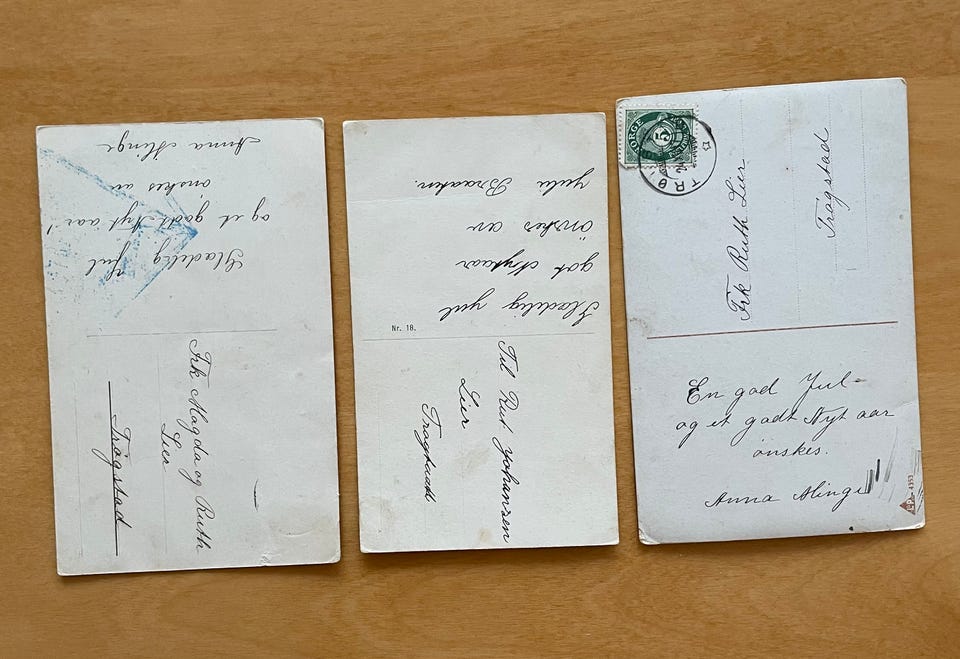 Glædelig Jul
og et godt Nyt aar!
ønskes av
Anna Alinge
Frk Magda og Ruth
Lier
Trøgstad
Glædelig jul
got Nytaar
önskes av
Jula Braaten.
Nr. 18.
Til Rut Johansen
Lier
Trøgstad
NORGE
5
TRØ
Frk Ruth Lier
Trøgstad
En god Jul-
og et godt Nyt aar
ønskes.
Anna Alinge
4353